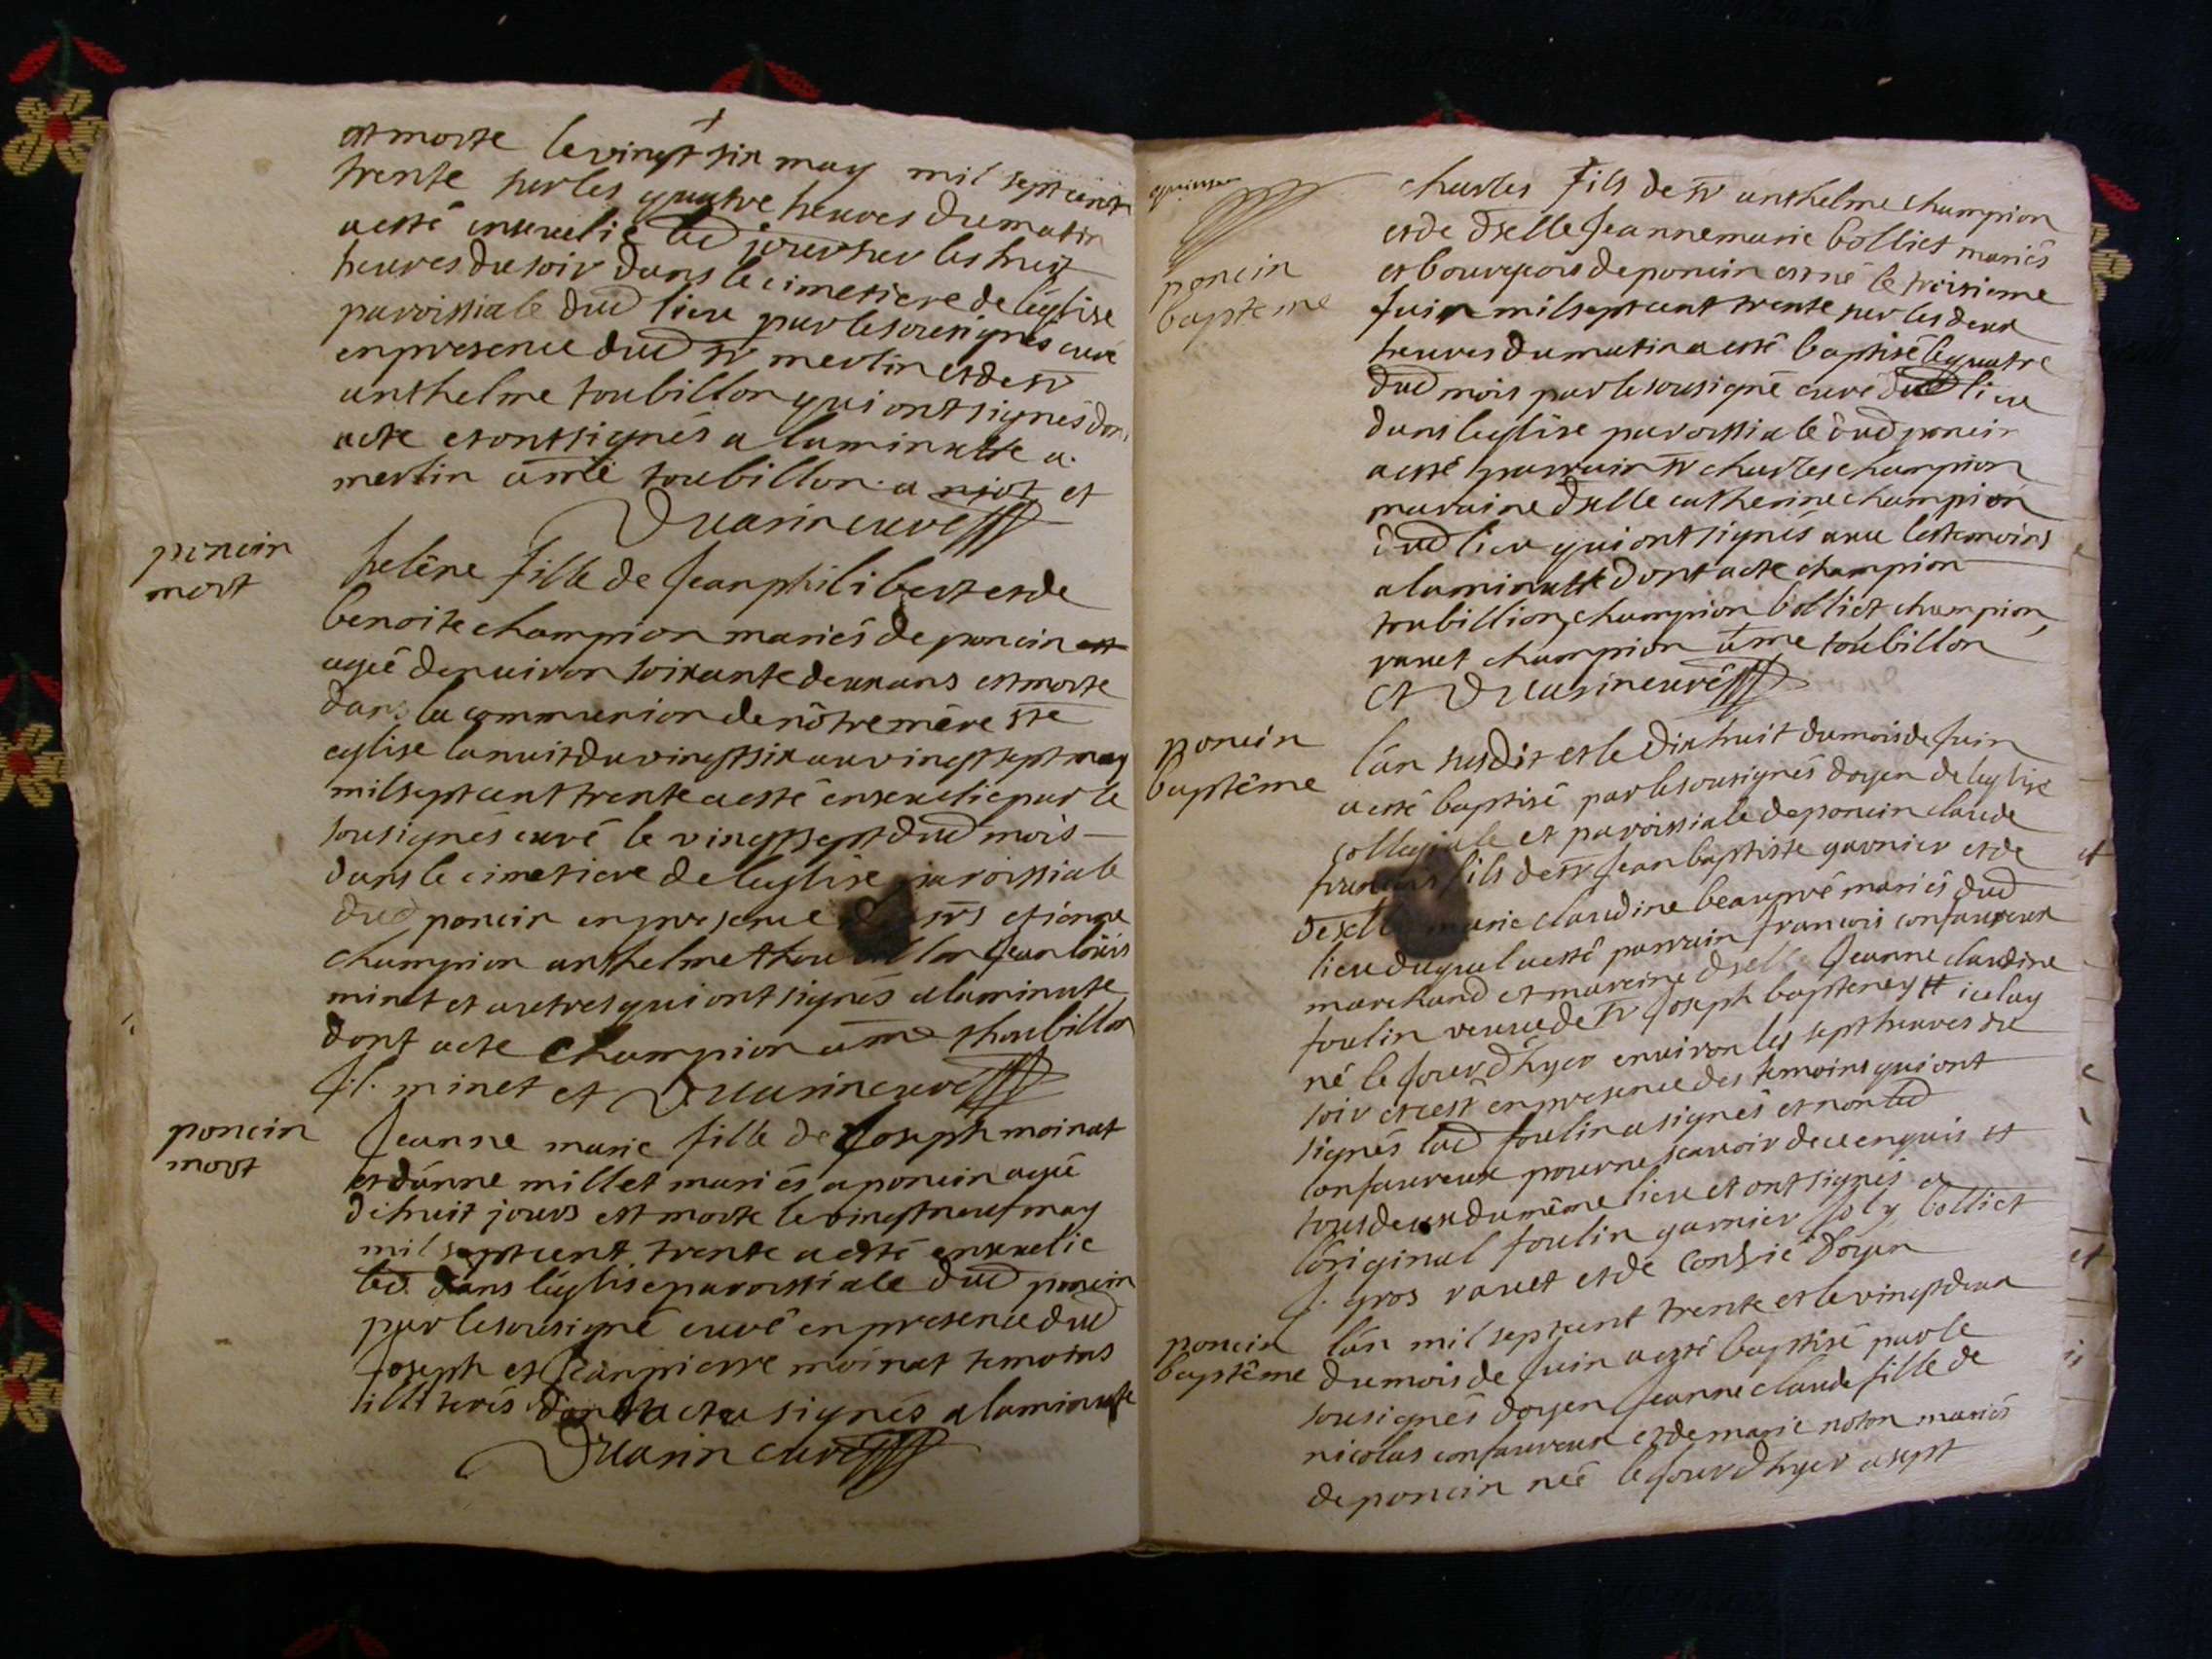 est morte le vingt six may mil sept cent
trente sur les quatre heures du matin
a esté enseuelie led jour sur les huit
heures du soir dans le cimetiere de léglise
paroissiale dud lieu par le sousignés curé
en presence dud sr merlin et de sr
anthelme toubillon qui ont signés dont
acte et ont signés a la minutte a.
merlin ame toubillon. a et
Duarin curé
poncin
mort
helêne fille de Jean philibert et de
benoite champion mariés de poncin
agée denuiron soixante deux ans est morte
dans la communion de nôtre mére ste
eglise la nuit du vingt six au vingt sept may
mil sept cent trente a esté enseuelie par le
sousignés curé le vingt sept dud mois
dans le cimetiere de leglise paroissiale
dud poncin en presence srs etienne
champion anthelme thoubillon Jean loüis
minet et autres qui ont signés a la minute
dont acte champion ame thoubillon
J. l. minet et Duarin curé
poncin
mort
Jeanne marie fille de Joseph moinat
et dánne millet mariés a poncin agée
de huit jours est morte le vingt neuf may
mil sept cent trente a esté enseuelie
led. dans léglise paroissiale dud poncin
par le sousigné curé en presence dud
Joseph et Jean pierre moinat temoins
illiterés dont acte signés a la minutte
Duarin curé
poncin
baptéme
charles fils de sr anthelme champion
et de dselle Jeanne marie bolliet mariés
et bourgeois de poncin est né le troisieme
Juin mil sept cent trente sur les deux
heures du matin a esté baptisé le quatre
dud mois par le sousigné curé dud lieu
dans leglise paroissiale dud poncin
a esté parrain sr charles champion
maraine dselle catherine champion
dud lieu qui ont signés auec les temoins
a la minutte dont acte champion
toubillion, champion bolliet champion,
rauet champion ame toubillon
et Duarin curé
poncin
baptême
lán susdit et le dix huit du mois de Juin
a esté baptisé par le sousignés doyen de leglise
collegiale et paroissiale de poncin claude
francois fils de sr Jean baptiste garnier et de
deselle marie claudine beaupré mariés dud
lieu duquel a esté parrain francois confaureux
marchand et mareine dselle Jeanne claudine
foulin veuue de sr Joseph bapteney icelay
né le Jour d'hyer enuiron les sept heures du
soir et cest en presence des temoins qui ont
signés lad foulin a signés et non led
confaureux pour ne scauoir de ce enquis et
tous deux du même lieu et ont signés a
lóriginal foulin garnier Joly bolliet
J. gros rauet et de Conzié doyen
poncin
baptême
lán mil sept cent trente et le vingt deux
du mois de Juin a esté baptisé par le
sousignés doyen Jeanne claude fille de
nicolas confaureux et de marie noton mariés
de poncin née le Jour d'hyer a sept